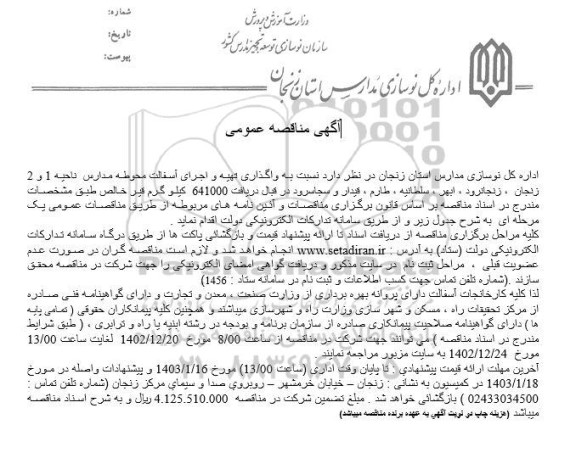 وزارت آموزش و پرورش
سازمان نوسازی توسعه تجهیز مدارس کشور
اداره کل نوسازی مدارس استان زنجان
شماره:
تاریخ:
پیوست:
آگهی مناقصه عمومی
اداره کل نوسازی مدارس استان زنجان در نظر دارد نسبت به واگذاری تهیه و اجرای آسفالت محوطه مدارس ناحیه 1 و 2
زنجان ، زنجانرود ، ابهر ، سلطانیه ، طارم ، قیدار و سجاسرود در قبال دریافت 641000 کیلو گرم قیر خالص طبق مشخصات
مندرج در اسناد مناقصه بر اساس قانون برگزاری مناقصات و آئین نامه های مربوطه از طریق مناقصات عمومی یک
مرحله ای به شرح جدول زیر و از طریق سامانه تدارکات الکترونیکی دولت اقدام نماید .
کلیه مراحل برگزاری مناقصه از دریافت اسناد تا ارائه پیشنهاد قیمت و بازگشائی پاکت ها از طریق درگاه سامانه تدارکات
الکترونیکی دولت (ستاد) به آدرس : www.setadiran.ir انجام خواهد شد و لازم است مناقصه گران در صورت عدم
عضویت قبلی ، مراحل ثبت نام در سایت مذکور و دریافت گواهی امضای الکترونیکی را جهت شرکت در مناقصه محقق
سازند .(شماره تلفن تماس جهت کسب اطلاعات و ثبت نام در سامانه ستاد : 1456)
لذا کلیه کارخانجات آسفالت دارای پروانه بهره برداری از وزارت صنعت ، معدن و تجارت و دارای گواهینامه فنی صادره
از مرکز تحقیقات راه ، مسکن و شهر سازی وزارت راه و شهرسازی میباشند و همچنین کلیه پیمانکاران حقوقی ( تمامی پایه
ها ) دارای گواهینامه صلاحیت پیمانکاری صادره از سازمان برنامه و بودجه در رشته ابنیه یا راه و ترابری ، ( طبق شرایط
مندرج در اسناد مناقصه ) می توانند جهت شرکت در مناقصه از ساعت 8/00 مورخ 1402/12/20 لغایت ساعت 13/00
مورخ 1402/12/24 به سایت مزبور مراجعه نمایند
آخرین مهلت ارائه قیمت پیشنهادی : تا پایان وقت اداری (ساعت 13/00) مورخ 1403/1/16 و پیشنهادات واصله در مورخ
1403/1/18 در کمیسیون به نشانی : زنجان – خیابان خرمشهر – روبروی صدا و سیمای مرکز زنجان (شماره تلفن تماس :
02433034500 ) بازگشائی خواهد شد . مبلغ تضمین شرکت در مناقصه 4.125.510.000 ریال و به شرح اسناد مناقصه
میباشد (هزینه چاپ دو نوبت آگهی به عهده برنده مناقصه میباشد)